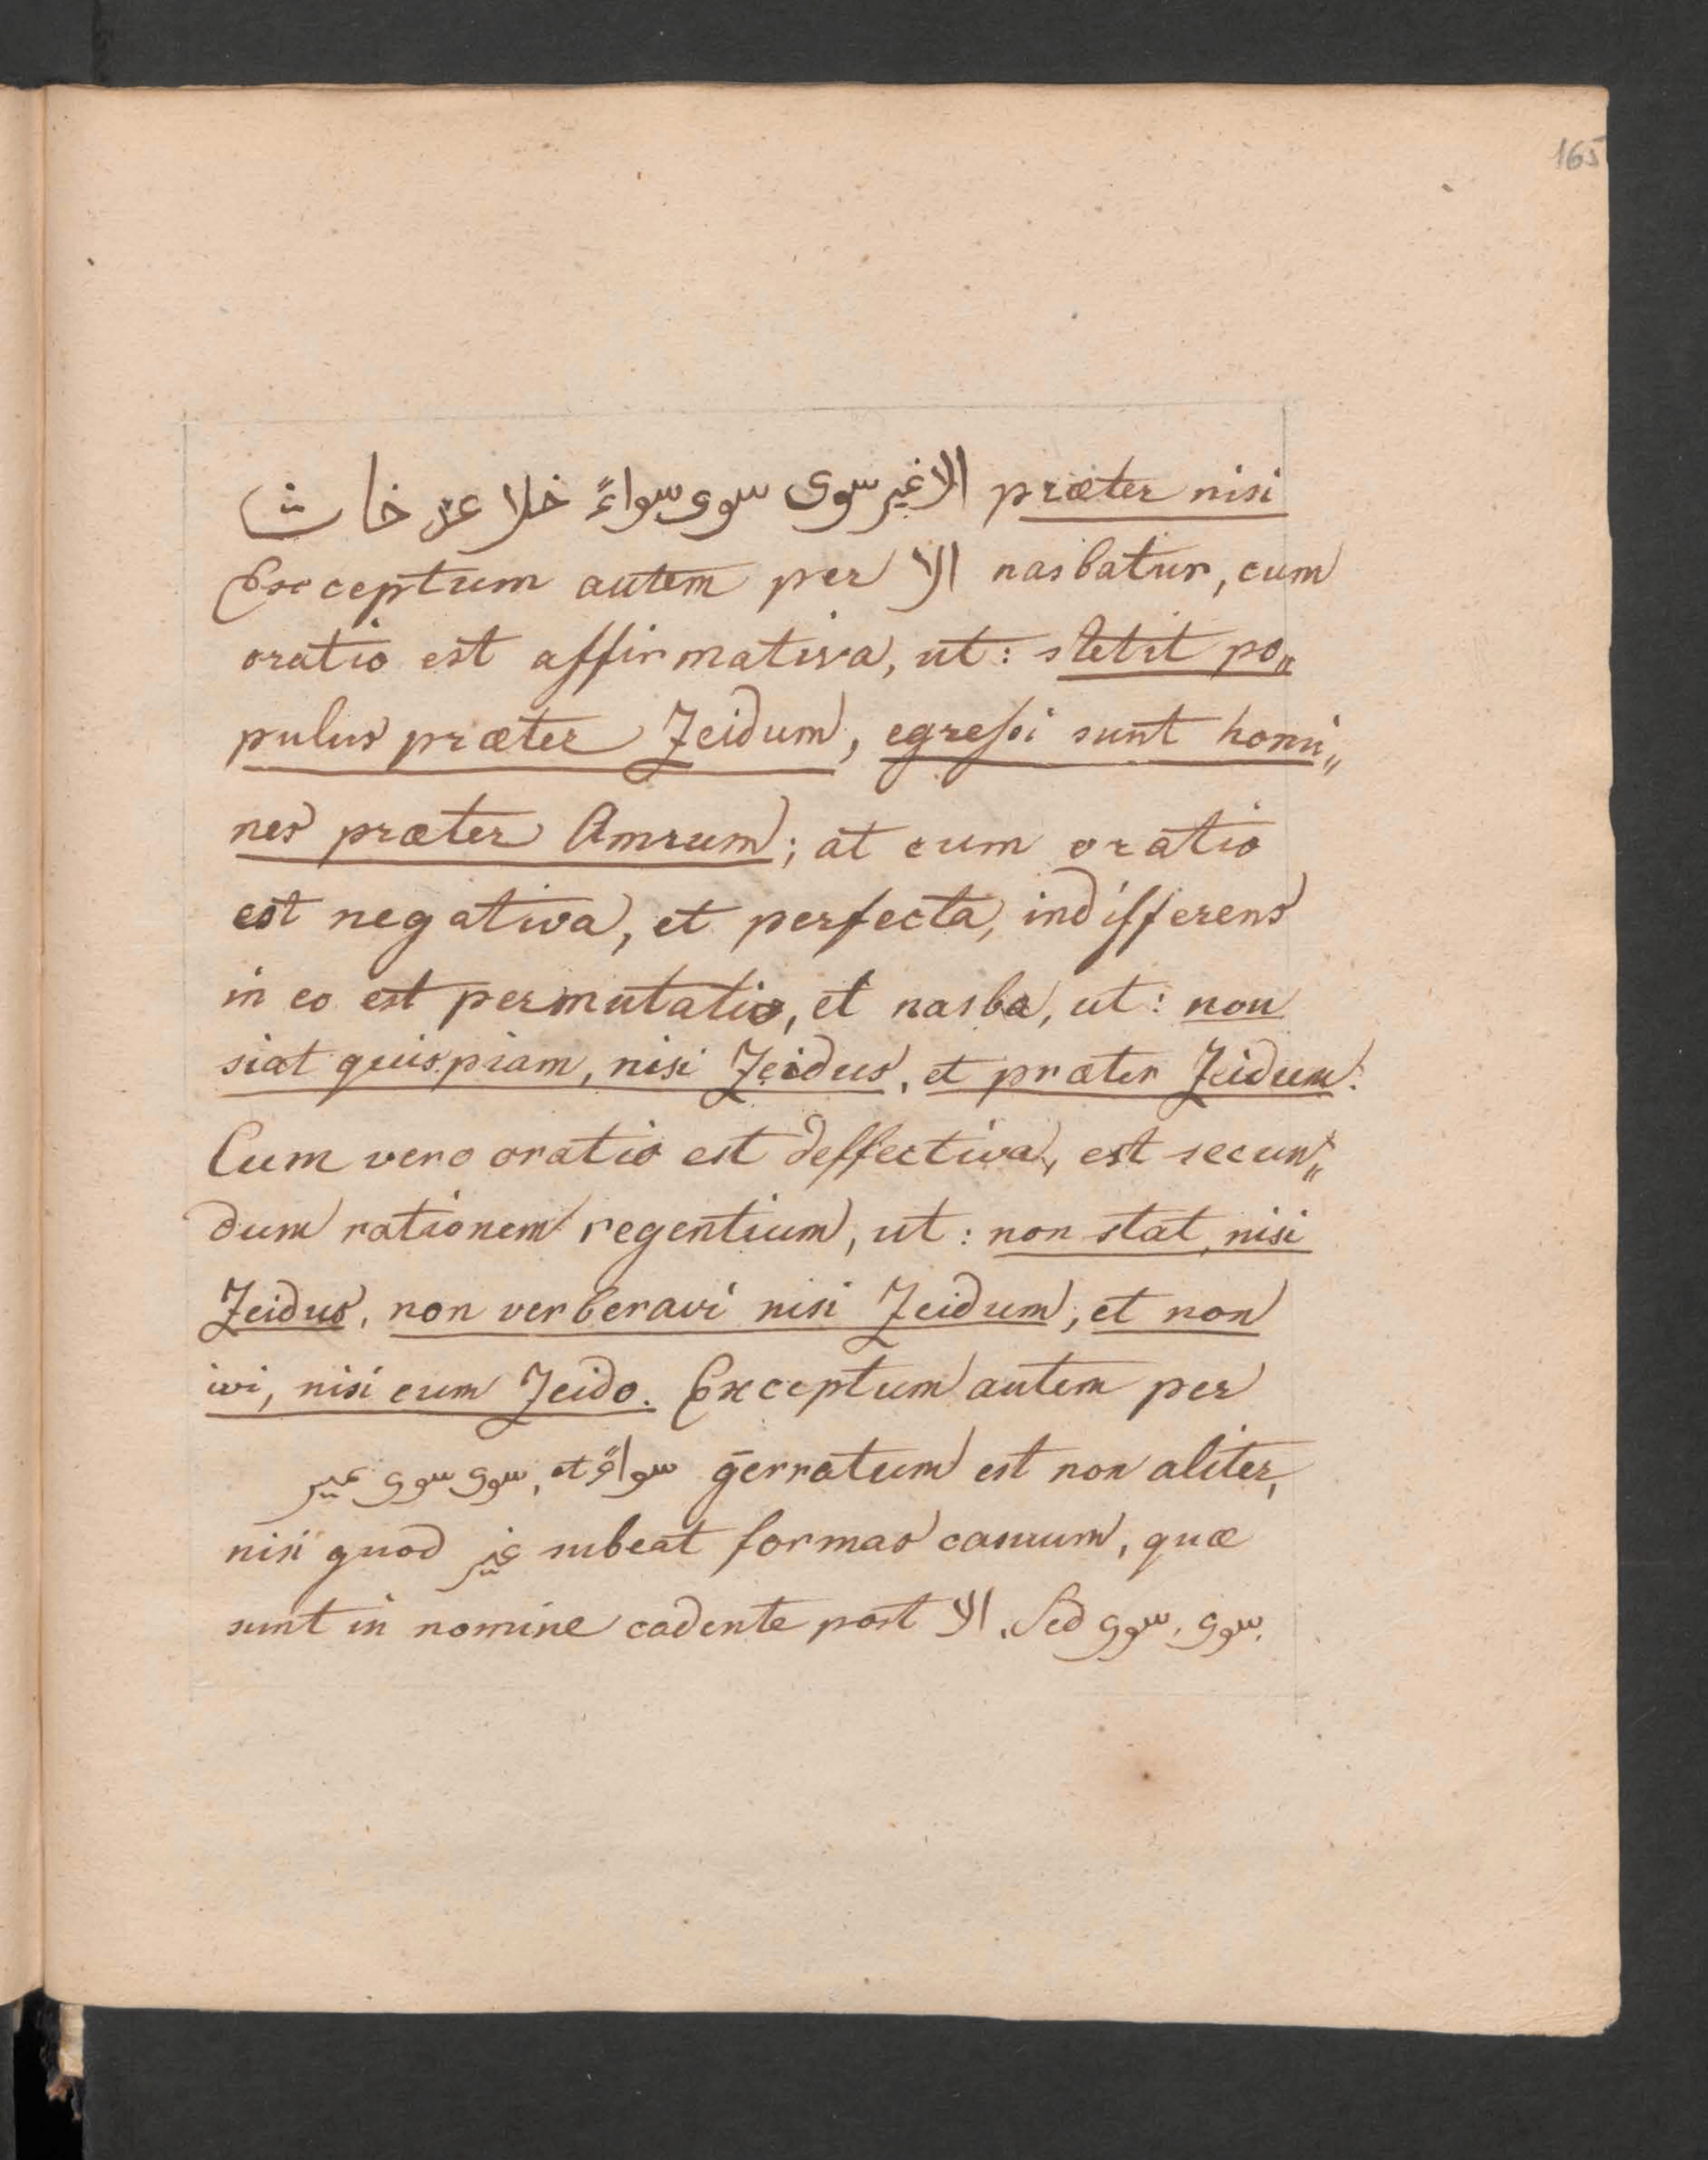 165
الا غير سوى سوى سواءً خلا عد خا ث præter nisi
Exceptum autem per الا nasbatur, cum
oratio est affirmativa, ut: stetit po„
pulus præter Zeidum, egressi sunt homi„
nes præter Amrum; at cum oratio
est negativa, et perfecta, indifferens
in eo est permutatio, et nasba, ut: non
siat quispiam, nisi Zeidus, et præter Zeidum.
Cum vero oratio est deffectiva, est secun„
dum rationem regentium, ut: non stat, nisi
Zeidus, non verberavi nisi Zeidum, et non
ivi, nisi cum Zeido. Exceptum autem per
عير سوى سوى, et سواءً g̅erratum est non aliter,
nisi quod غير subeat formas casuum, quæ
sunt in nomine cadente post الا. Sed سوى, سوى.